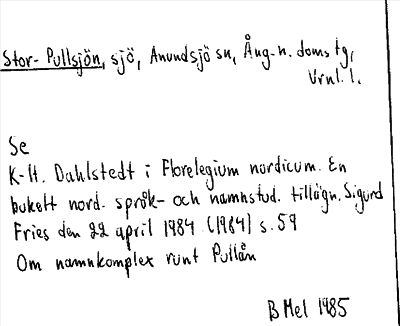 Stor-Pullsjön, sjö, Anundsjö sn, Ång-n. doms tg,
Vrnl. l.
Se
K-H. Dahlstedt i Florelegium nordicum. En
bukett nord. språk- och namnstud. tillägn. Sigurd
Fries den 22 april 1984 (1984) s. 59
Om namnkomplex runt Pullån
B Mel 1985